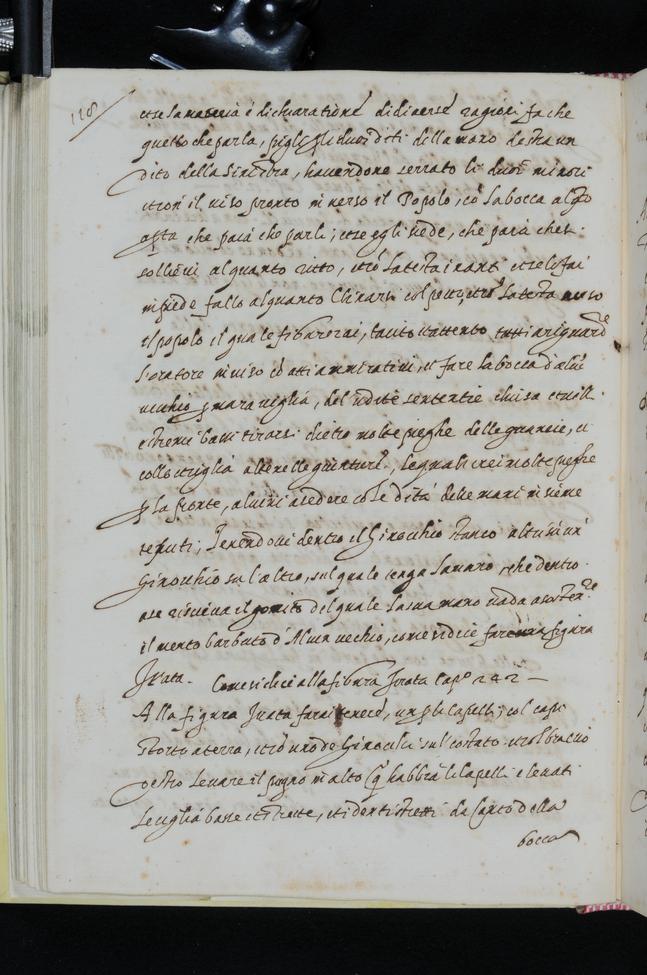 118
et se la materia è dichiaratione di diverse ragioni fa che
quello che parla, pigli gli duoi diti della mano destra un
dito della sinistra, havendone serrato li duoi minori
et con il viso pronto in verso il Popolo, con la bocca alqto
apta che paia che parli; et se egli siede, che paia che si
sollievi alquanto ritto, et con la testa inanti et se lo fai
in piede fallo alquanto chinarsi col petto, et con la testa verso
il popolo il quale figurerai, tacito et attento tutti a riguardare
l'oratore in viso con atti amirativi, et fare la bocca d'alcun
vecchio p maraviglia, del udite sententie chiusa et nelli
estremi bassi tirarsi dietro molte pieghe delle guancie, et
colle ciglia alte nelle giunture, le quali crei molte pieghe
p la fronte, alcuni a sedere con le dita delle mani insieme
tenuti; Tenendovi dentro il Ginocchio stanco altri con un
Ginocchio su l'altro, sul quale tenga la mano, che dentro
a se riceva il gomito del quale la sua mano vada a sostenere
il mento barbuto d'Alcun vecchio, come si dice fare una figura
Irata. Come si dice alla figura Irata Capo 242 —
Alla figura Irata farai tenere, un p li capelli; col capo
storto a terra, et con uno de Ginocchi sul costato et col braccio
destro Levare il pugno in alto q habbia li capelli elevati
Le ciglia basse et strette, et i denti stretti da canto della
bocca